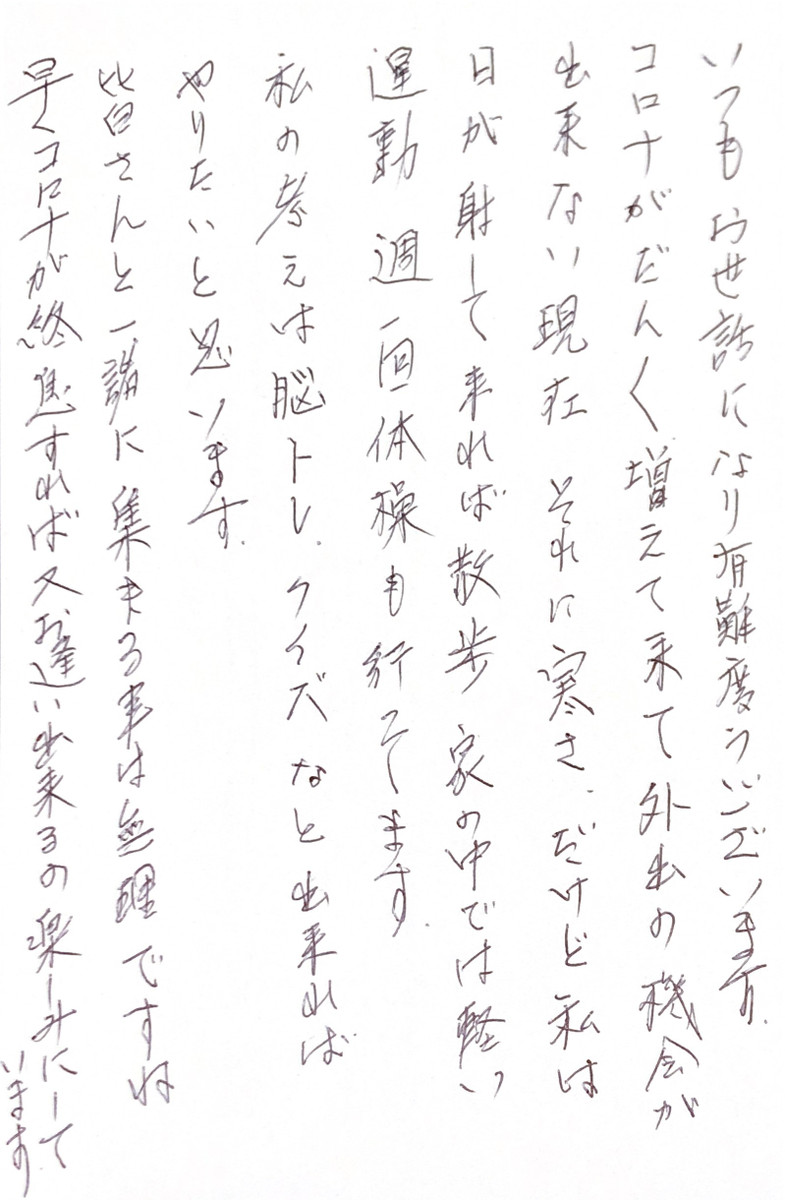 いつもお世話になり有難度うございます。
コロナがだん〱増えて来て外出の機会が
出来ない現在 それに寒さ、だけど私は
日が射して来れば散歩 家の中では軽い
運動 週一回体操も行そてます。
私の考えは脳トレ、クイズなど出来れば
やりたいと思います。
皆さんと一諸に集まる事は無理ですね
早くコロナが終息すれば又お逢い出来るの楽しみにして
います。